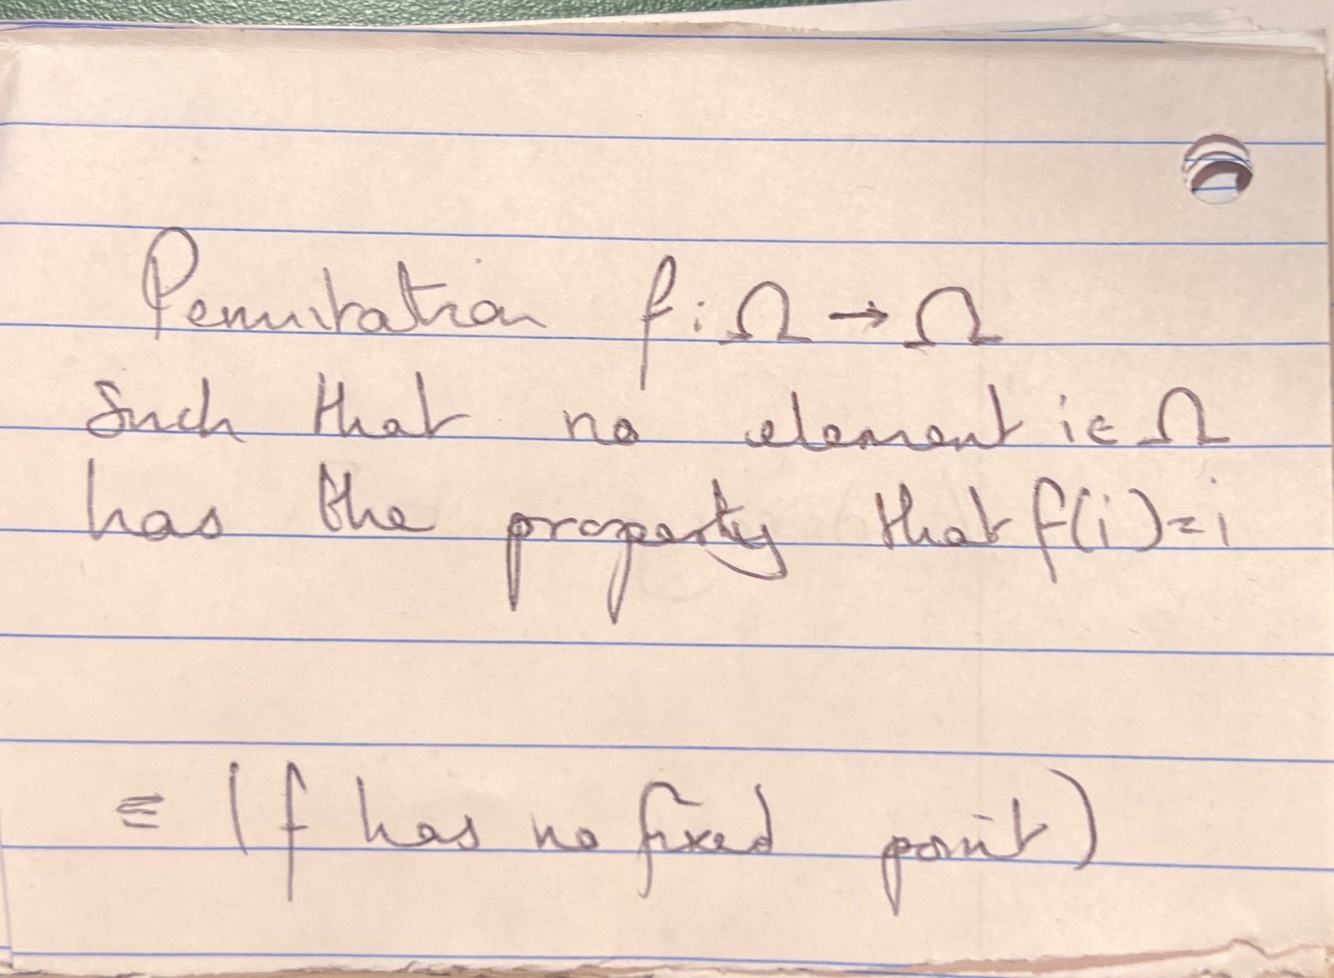 Permutation f : Ω → Ω
Such that no element i ∈ Ω
has the property that f(i) = i
≡ (f has no fixed point)